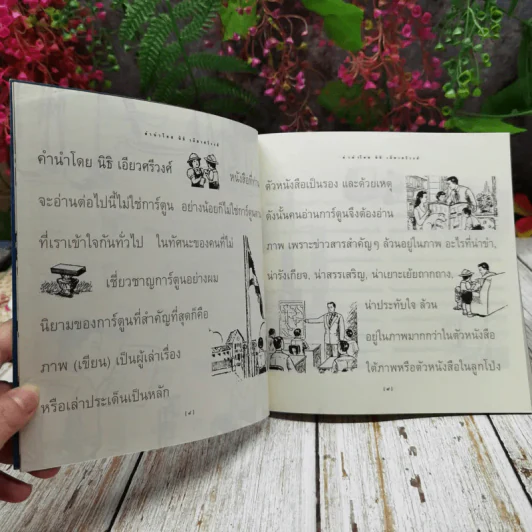 คำนำโดย นิธิ เอียวศรีวงศ์
คำนำโดย นิธิ เอียวศรีวงศ์ หนังสือที่ท่าน
จะอ่านต่อไปนี้ไม่ใช่การ์ตูน อย่างน้อยก็ไม่ใช่การ์ตูนตาม
ที่เราเข้าใจกันทั่วไป ในทัศนะของคนที่ไม่
เชี่ยวชาญการ์ตูนอย่างผม
นิยามของการ์ตูนที่สำคัญที่สุดก็คือ
ภาพ (เขียน) เป็นผู้เล่าเรื่อง
หรือเล่าประเด็นเป็นหลัก
คำนำโดย นิธิ เอียวศรีวงศ์
ตัวหนังสือเป็นรอง และด้วยเหตุ
ดังนั้นคนอ่านการ์ตูนจึงต้องอ่าน
ภาพ เพราะข่าวสารสำคัญๆ ล้วนอยู่ในภาพ อะไรที่น่าขำ,
น่ารังเกียจ, น่าสรรเสริญ, น่าเยาะเย้ยถากถาง,
น่าประทับใจ ล้วน
อยู่ในภาพมากกว่าในตัวหนังสือ
ใต้ภาพหรือตัวหนังสือในลูกโป่ง